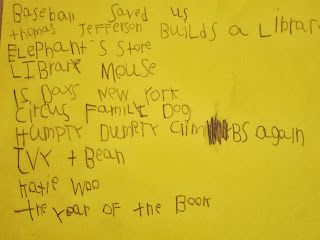 Baseball saved us
thomas Jefferson BuilDs a Librar
ELePHant's Store
LIBrarY Mouse
Days New York
Circus FamiLY Dog
HumPtY DumPtY ClimBS again
IVY + Bean
Katie Woo
the Year OF the Book